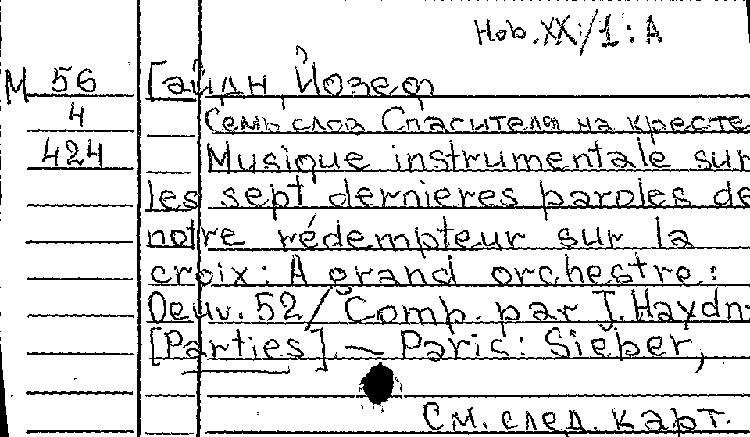 Hob. XX:/1:A
М 56 Гайдн, Йозеф
4 Семь слов Спасителя на кресте
424 Musique instrumentale sur
les sept dernieres paroles de
notre rédempteur sur la
croix: A grand orchestre:
Oeuv. 52 / Comp. par J. Haydn.
[Parties]. — Paris: Sieber,
См. след. карт.